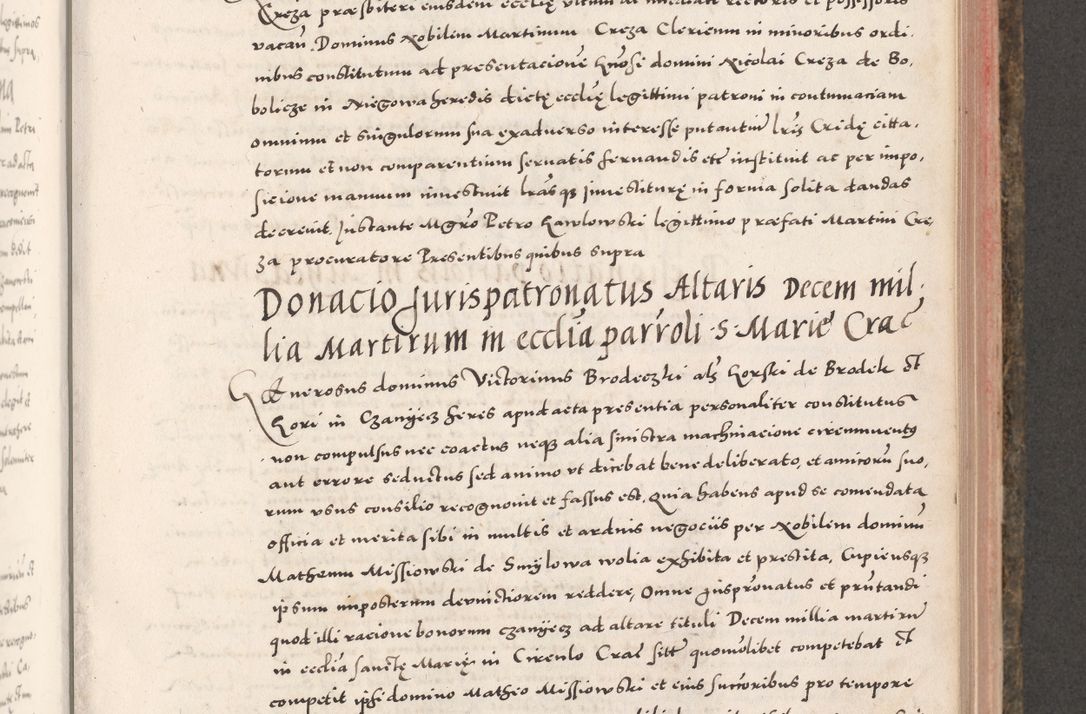 Creza præsbiteri eiusdem ecclię ultimi ac immediati rectoris et possessoris
vacań. Dominus Nobilem Martinum Creza Clericum in minoribus ordi,
nibus constitutum ad presentacione domini Nicolai Creza de Bo,
bolicze in Niegowa heredis dictę ecclię legittimi patroni in contumaciam
omnium et singulorum sua exadverso interesse putantiu lris Cridę citta,
torum et non comparentium servatis servandis etc instituit ac per impo,
sicione manuum investivit lrasq investiturę in forma solita dandas
decrevit. Instante Mgro Petro Kawlowski legittimo præfati Martini Cre,
za procuratore Presentibus quibus supra
Donacio Jurispatronatus Altaris Decem mil,
lia Martirum in ecclia parroli S. Marie Crac
Generosus dominus Victorinus Brodeczki als Gorski de Brodek et
Gori in Czanyecz heres apud acta presentia personaliter constitutus
non compulsus nec coactus neq alia sinistra machinacione circumventus
aut errore seductus sed animo ut dicebat bene deliberato, et amicoru suo,
rum usus consilio recognovit et fassus est, Quia habens apud se comendata
officia et merita sibi in multis et arduis negociis per Nobilem dominu
Matheum Missiowski de Smylowa wolia exhibita et prestita, Cupiensq
ipsum imposterum devinctiorem reddere, Omne Juspronatus et prntandi
quod illi racione bonorum czanyecz ad altare tituli Decem millia martiru
in ecclia sanctę Marię in Circulo Crac sitt quomolibet competebat et
competit ipsi domino Matheo Missiowski et eius successoribus pro tempore